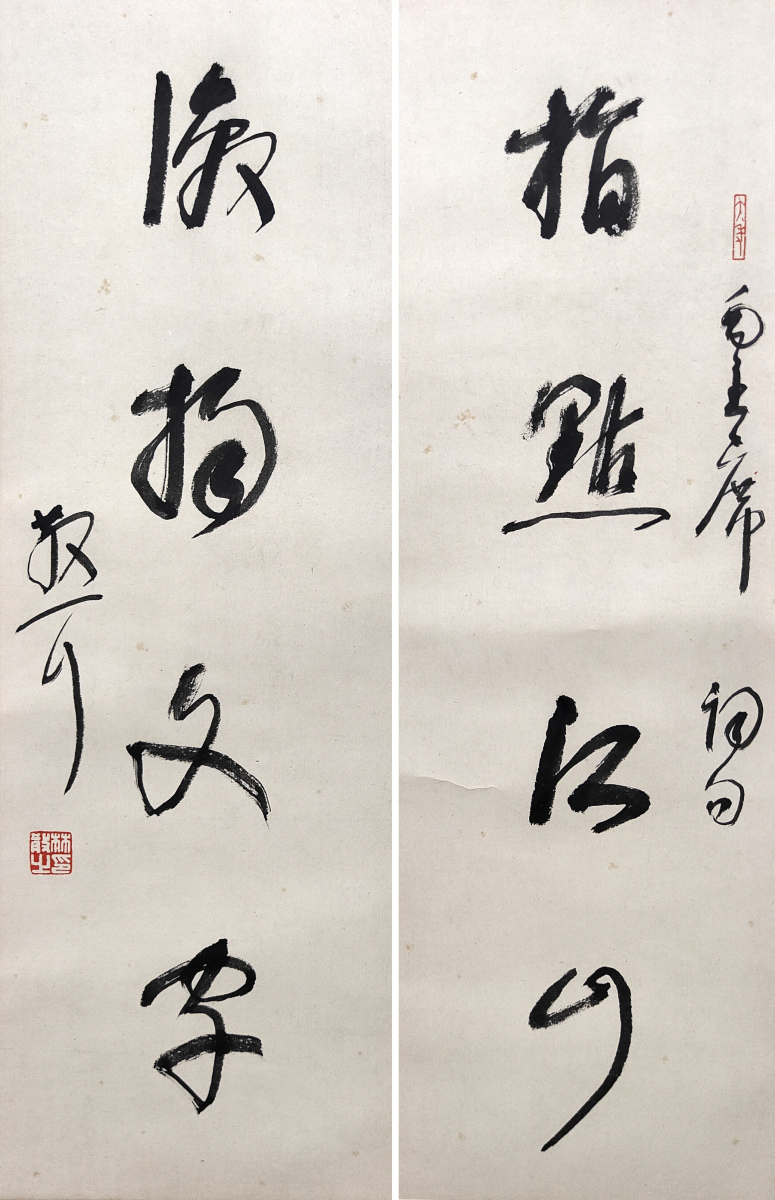 毛主席詞句
指點江山
激揚文字
散耳
林散之印